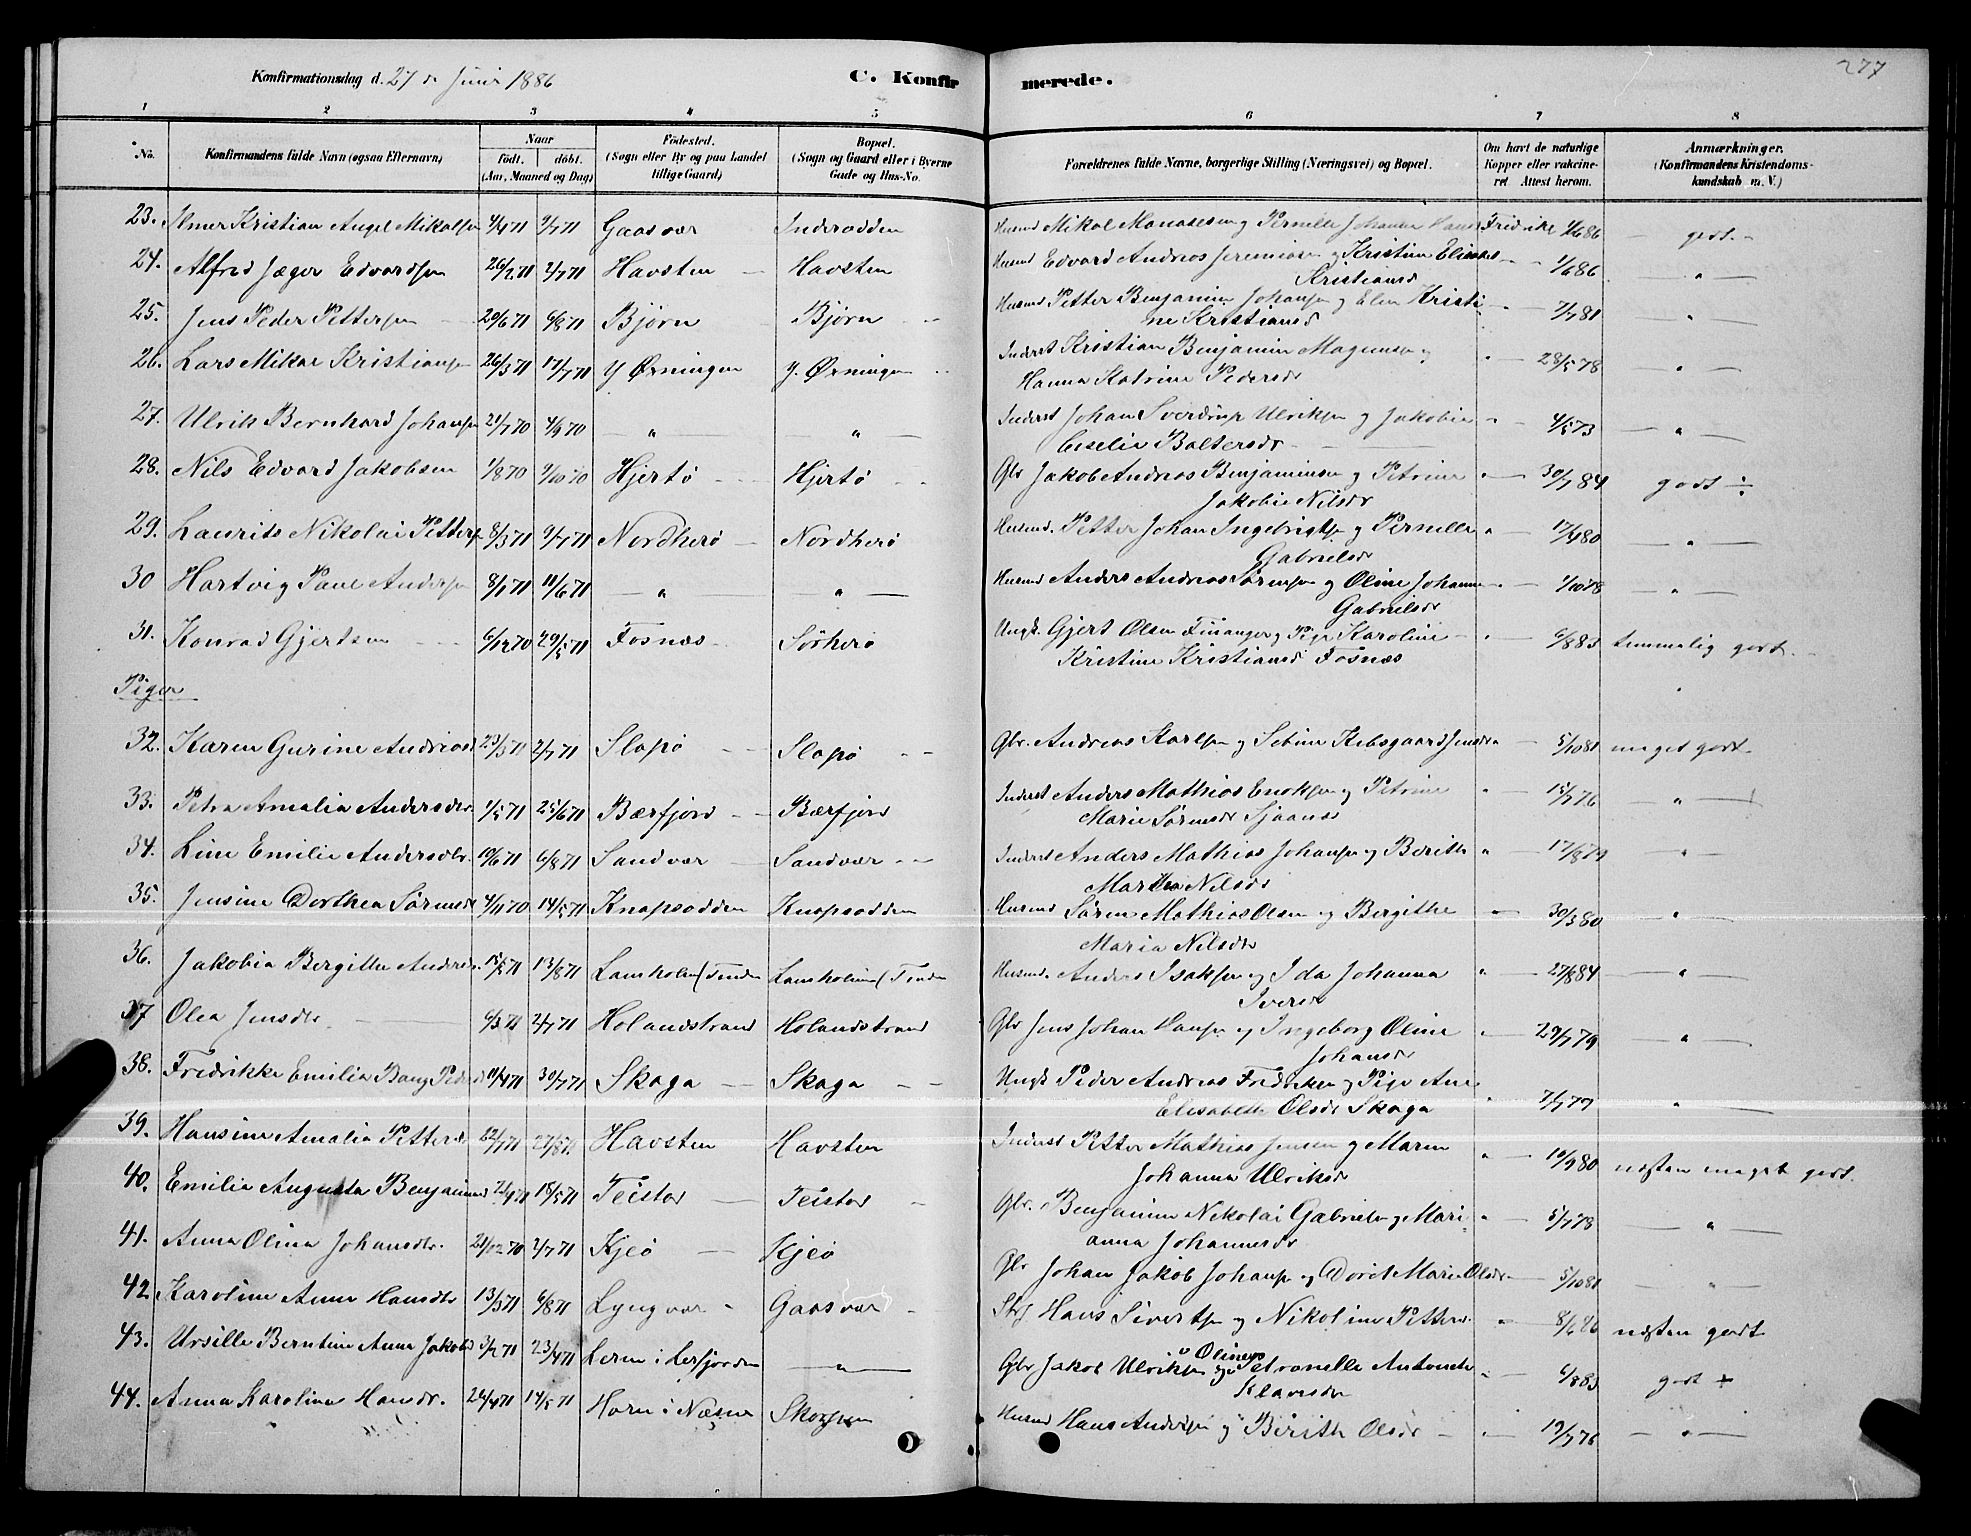 Konfirmationsdag d. 27 de Juni 1886
C. Konfirmerede.
277
1 2 3 4 5 6 7 8
No.
Konfirmandens fulde Navn (ogsaa Efternavn)
Naar
født. døbt.
(Aar, Maaned og Dag)
Fødested.
(Sogn eller By og paa Landet
tillige Gaard)
Bopæl.
(Sogn og Gaard eller i Byerne
Gade og Hus-No.
Forældrenes fulde Navne, borgerlige Stilling (Næringsvei) og Bopæl.
Om havt de naturlige
Kopper eller vakcine-
ret Attest herom.
Anmærkninger.
(Konfirmandens Kristendoms-
kundskab m. V.)
23. Kristian Angel Mikalsen 4/4 71 2/7 71 Gaasvær Inderodden Husmd Mikal Manassesen og Pernille Johanna Fredrikke 1/6 86 — godt. -
24. Alfred Jæger Edvardsen 26/2 71 2/7 71 Havsten Havsten Husmd Edvard Andreas Jeremiasen og Kristine
Kristiansd 1/6 86 — " —
25. Jens Peder Pettersen 20/6 71 6/8 71 Bjørn Bjørn Husmd Petter Benjamin Johansen og Elen Kristi
ne Kristiansd 7/7 81 — " —
26. Lars Mikal Kristiansen 26/3 71 17/7 71 Y Ørningen Y. Ørningen Inderst Kristian Benjamin Magensen og
Hanna Katrine Pedersdr 28/5 78 — " —
27. Ulrik Bernhard Johansen 21/7 70 4/9 70 — " — — " — Inderst Johan Sverdrup Ulriksen og Jakobie
Ceselie Baltersdr 4/5 73 — " —
28. Nils Edvard Jakobsen 1/8 70 9/10 70 Hjertø Hjertø Gbr Jakob Andreas Benjaminsen og Petrine
Jakobie Nilsdr 30/7 84 godt ÷
29. Laurits Nikolai Petters 8/3 71 9/7 71 Nordherø Nordherø Husmd. Petter Johan Ingebrigtsen og Pernille
Gabrielsdr 17/9 80 — " —
30 Hartvig Paul Andersen 8/1 71 11/6 71 — " — — " — Husmd Anders Andreas Sørensen og Oline Johanne
Gabrielsdr 1/10 78 — " —
31. Konrad Gjertsen 6/12 70 29/5 71 Fosnæs Sørherø Ungk. Gjert Olsen Finanger og Pige Karoline
Kristine Kristiansd Fosnæs 6/8 83 temmelig godt.
Piger
32. Karen Gurine Andreasd 23/5 71 2/7 71 Slapø Slapø Gbr. Andreas Karlsen og Sekine Kibsgaard Jensdr 5/10 81 meget godt.
33. Petra Amalia Andersdr. 1/5 71 25/6 71 Bærfjord Bærfjord Inderst Anders Mathias Enoksen og Petrine
Marie Sørensdr Sjaanæs 15/7 76 — " —
34. Line Emilie Andersdtr. 19/6 71 6/8 71 Sandvær Sandvær Inderst Anders Mathias Johansen og Berith
Marthea Nilsdr 17/8 79 — " —
35. Jensine Dorthea Sørensd 4/11 70 14/5 71 Knapsodden Knapsodden Husmd Søren Mathias Olsen og Bergithe
Maria Nilsdtr 30/3 80 — " —
36. Jakobia Bergitte Andersd. 15/5 71 13/8 71 Lamholmen (Tenden Lamholmen (Tenden Husmd. Anders Isaksen og Ida Johanna
Iversd 27/8 84 — " —
37 Olea Jensdtr. 6/3 71 2/7 71 Holandstrand Holandstrand Gbr Jens Johan Hansen og Ingeborg Oline
Johansdr 29/7 79 — " —
38. Fredrikke Emilia Bang Pedersd 11/4 71 30/7 71 Skaga Skaga Ungk Peder Andreas Fredriksen og Pige Ane
Elisabeth Olsdr Skaga 7/7 77 — " —
39. Hansine Amalia Pettersd. 22/7 71 27/8 71. Havsten Havsten Inderst Petter Mathias Jensen og Maren
Johanna Ulriksdr 10/9 80 næsten meget godt.
40. Emilie Augusta Benjamind 22/4 71 18/5 71 Teistor Teistor Gbr. Benjamin Nikolai Gabrielsen og Mari
anna Johannesdr 5/7 78 — " —
41. Anna Olina Johansdtr. 21/12 70 2/7 71 Kjeø Kjeø Gbr Johan Jakob Johansen og Dorit Marie Olsdr 5/10 81 — " —
42 Karoline Anne Hansdtr 13/3 71 6/8 71 Lyngvær Gaasvær Hans Sivertsen og Nikoline Pettersd. 8/6 86 næsten godt
43. Ursille Berntine Anne Jakobsd 3/2 71 23/4 71 Leren i Lersfjorden — " — Gbr Jakob Ulriksen og Olines Petronelle Antonette
Klausdr 6/8 83 godt +
44. Anna Karolina Hansdr. 24/4 71 14/5 71 Horn i Næsne Skorpen Husmd Hans Andersen og Berith Olsdr 19/7 76 — " —